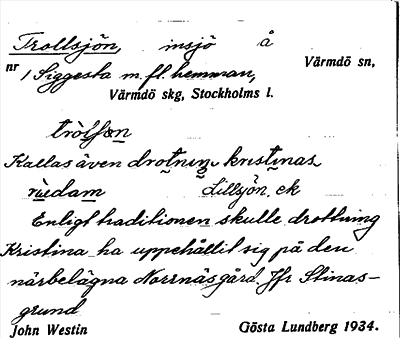 Trollsjön, insjö å
Värmdö sn,
nr 1 Siggesta m. fl. hemman,
Värmdö skg, Stockholms l.
Kallas även drotniŋ kristinas
rùedam Lillsjön, ek
Enligt traditionen skulle drottning
Kristina ha uppehållit sig på den
närbelägna Norrnäs gård. Jfr Stinas-
grund
John Westin Gösta Lundberg 1934.